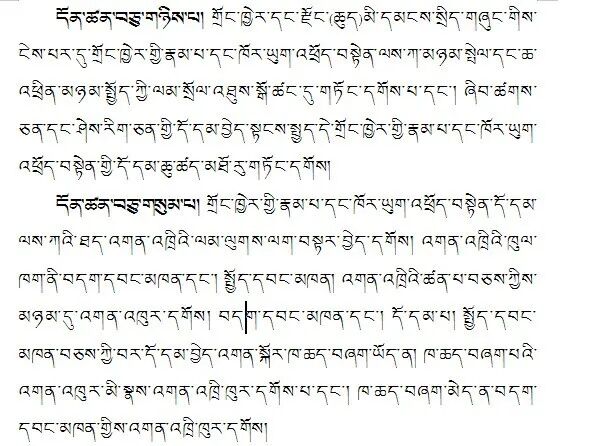 དོན་ཚན་བཅུ་གཉིས་པ། གྲོང་ཁྱེར་དང་རྫོང་(ཆུད)མི་དམངས་སྲིད་གཞུང་གིས་
ངེས་པར་དུ་གྲོང་ཁྱེར་གྱི་རྣམ་པ་དང་ཁོར་ཡུག་འཕྲོད་བསྟེན་ལས་ཀ་མཉམ་སྤེལ་དང་ཆ་
འཕྲིན་མཉམ་སྤྱོད་ཀྱི་ལམ་སྲོལ་འཐུས་སྒོ་ཚང་དུ་གཏོང་དགོས་པ་དང་། ཞིབ་ཚགས་
ཅན་དང་ཤེས་རིག་ཅན་གྱི་དོ་དམ་བྱེད་སྟངས་སྤྱད་དེ་གྲོང་ཁྱེར་གྱི་རྣམ་པ་དང་ཁོར་ཡུག་
འཕྲོད་བསྟེན་གྱི་དོ་དམ་ཆུ་ཚད་མཐོ་རུ་གཏོང་དགོས།
དོན་ཚན་བཅུ་གསུམ་པ། གྲོང་ཁྱེར་གྱི་རྣམ་པ་དང་ཁོར་ཡུག་འཕྲོད་བསྟེན་དོ་དམ་
ལས་ཀའི་ཐད་འགན་འཁྲིའི་ལམ་ལུགས་ལག་བསྟར་བྱེད་དགོས། འགན་འཁྲིའི་ཁུལ་
ཁག་ནི་བདག་དབང་མཁན་དང་། སྤྱོད་དབང་མཁན། འགན་འཁྲིའི་ཚན་པ་བཅས་ཀྱིས་
མཉམ་དུ་འགན་འཁུར་དགོས། བདག་དབང་མཁན་དང་། དོ་དམ་པ། སྤྱོད་དབང་
མཁན་བཅས་ཀྱི་བར་དོ་དམ་བྱེད་འགན་སྐོར་ཁ་ཆད་བཞག་ཡོད་ན། ཁ་ཆད་བཞག་པའི་
འགན་འཁུར་མི་སྣས་འགན་འཁྲི་ཁུར་དགོས་པ་དང་། ཁ་ཆད་བཞག་མེད་ན་བདག་
དབང་མཁན་གྱིས་འགན་འཁྲི་ཁུར་དགོས།